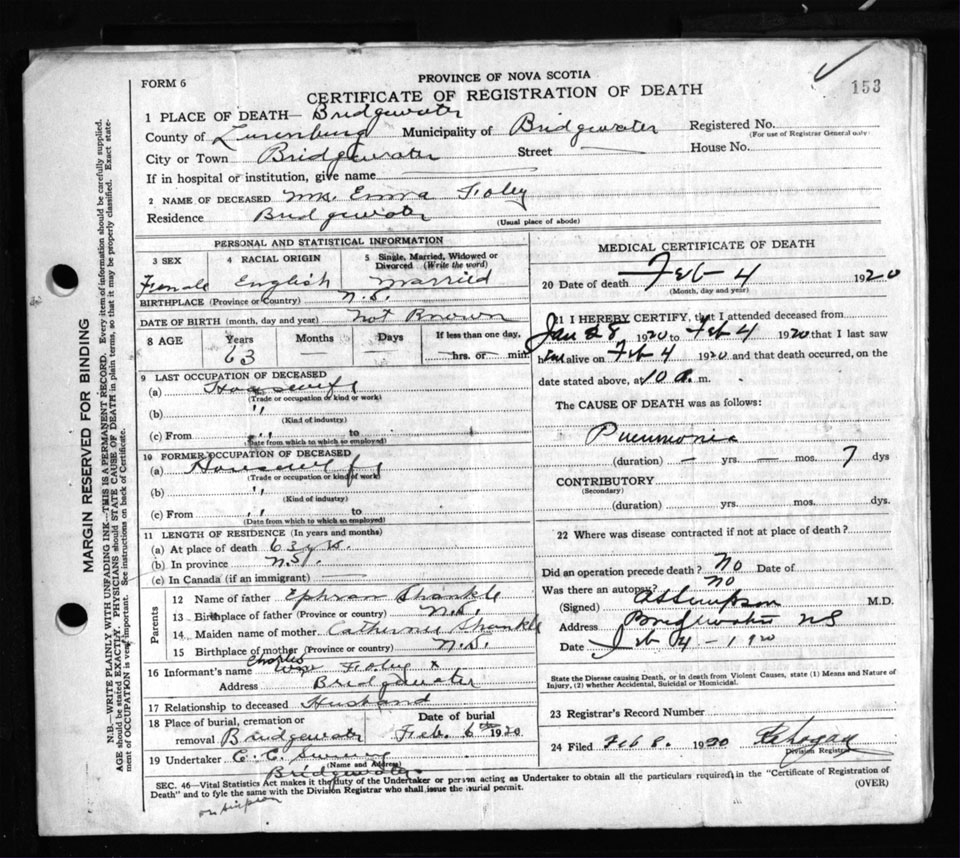 153
FORM 6
PROVINCE OF NOVA SCOTIA
CERTIFICATE OF REGISTRATION OF DEATH
1 PLACE OF DEATH— Bridgewater
County of Lunenburg Municipality of Bridgewater Registered No.
(For use of Registrar General only)
City or Town Bridgewater Street House No.
If in hospital or institution, give name
2 NAME OF DECEASED Mrs. Emma Foley
Residence Bridgewater
(Usual place of abode)
PERSONAL AND STATISTICAL INFORMATION
3 SEX 4 RACIAL ORIGIN 5 Single, Married, Widowed or Divorced (Write the word)
Female English Married
BIRTHPLACE (Province or Country) N.S.
DATE OF BIRTH (month, day and year) Not Known
8 AGE Years Months Days If less than one day,
63 — — — hrs. or — min.
9 LAST OCCUPATION OF DECEASED
(a) Housewife
(Trade or occupation or kind or work)
(b) "
(Kind of industry)
(c) From " to
(Date from which to which so employed)
10 FORMER OCCUPATION OF DECEASED
(a) Housewife
(Trade or occupation or kind of work)
(b) "
(Kind of industry)
(c) From " to
(Date from which to which so employed)
11 LENGTH OF RESIDENCE (In years and months)
(a) At place of death 63 yrs.
(b) In province N.S.
(c) In Canada (if an immigrant) —
Parents
12 Name of father Ephran Shankle
13 Birthplace of father (Province or country) N.S.
14 Maiden name of mother Catherine Shankle
15 Birthplace of mother (Province or country) N.S.
16 Informant's name Charles Foley x
Address Bridgewater
17 Relationship to deceased Husband
18 Place of burial, cremation or removal Bridgewater
Date of burial Feb. 6th 1920
19 Undertaker C. C.
(Name and Address)
Bridgewater
MEDICAL CERTIFICATE OF DEATH
20 Date of death Feb 4 1920
(Month, day and year)
21 I HEREBY CERTIFY, that I attended deceased from
Jan 28 1920 to Feb 4 1920 that I last saw
h er alive on Feb 4 1920 and that death occurred, on the
date stated above, at 10 a. m.
The CAUSE OF DEATH was as follows:
Pneumonia
(duration) — yrs. — mos. 7 dys
CONTRIBUTORY
(Secondary)
(duration) yrs. mos. dys.
22 Where was disease contracted if not at place of death?
Did an operation precede death? No Date of
Was there an autopsy? No
(Signed) M.D.
Address Bridgewater NS
Date Feb 4 - 1920
State the Disease causing Death, or in death from Violent Causes, state (1) Means and Nature of
Injury, (2) whether Accidental, Suicidal or Homicidal.
23 Registrar's Record Number
24 Filed Feb 8. 1920
Division Registrar
SEC. 46—Vital Statistics Act makes it the duty of the Undertaker or person acting as Undertaker to obtain all the particulars required in the "Certificate of Registration of
Death" and to fyle the same with the Division Registrar who shall issue the burial permit.
(OVER)
MARGIN RESERVED FOR BINDING
N.B.—WRITE PLAINLY WITH UNFADING INK—THIS IS A PERMANENT RECORD. Every item of information should be carefully supplied.
AGE should be stated EXACTLY. PHYSICIANS should STATE CAUSE OF DEATH in plain terms, so that it may be properly classified. Exact state-
ment of OCCUPATION is very important. See instructions on back of Certificate.